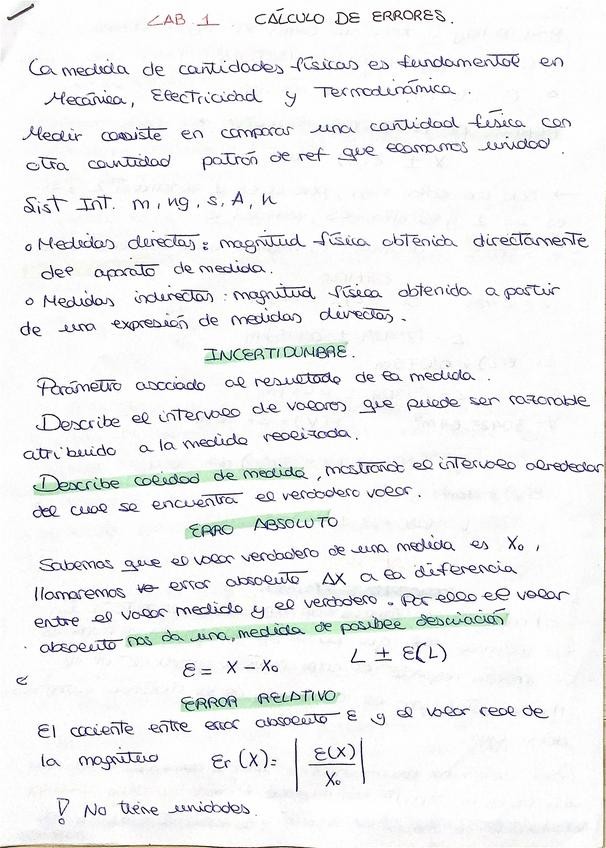 LAB. 1 CÁLCULO DE ERRORES.
La medida de cantidades físicas es fundamental en
Mecánica, Electricidad y Termodinámica.
Medir consiste en comparar una cantidad física con
otra cantidad patrón de ref que llamamos unidad.
Sist Int. m, kg, s, A, K
o Medidas directas: magnitud física obtenida directamente
del aparato de medida.
o Medidas indirectas: magnitud física obtenida a partir
de una expresión de medidas directas.
INCERTIDUMBRE.
Parámetro asociado al resultado de la medida.
Describe el intervalo de valores que puede ser razonable
atribuido a la medida realizada.
Describe calidad de medida, mostrando el intervalo alrededor
del cual se encuentra el verdadero valor.
ERRO ABSOLUTO
Sabemos que el valor verdadero de una medida es X₀,
llamaremos error absoluto ΔX a la diferencia
entre el valor medido y el verdadero. Por ello el valor
absoluto nos da una, medida de posible desviación
ε = X - X₀ L ± ε(L)
ERROR RELATIVO
El cociente entre error absoluto ε y el valor real de
la magnitud Er (X) = | ε(X) / X₀ |
! No tiene unidades.